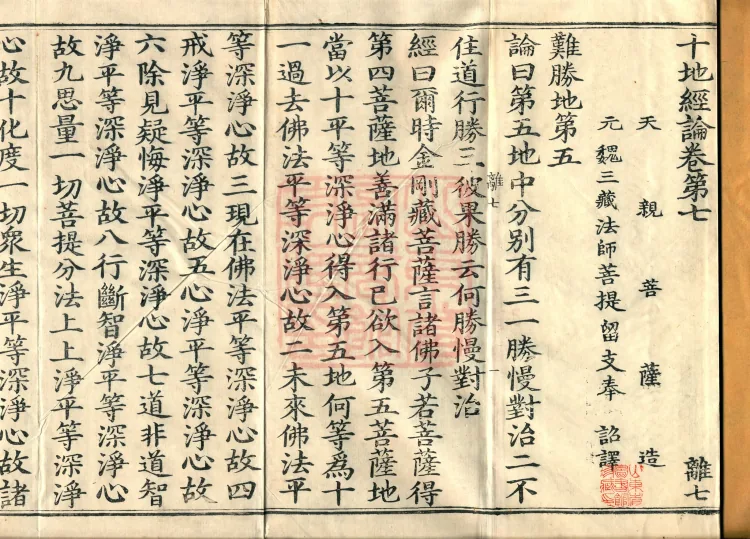 十地經論卷第七 離七
天親菩薩造
元魏三藏法師菩提留支奉 詔譯
難勝地第五
論曰第五地中分別有三一勝慢對治二不
離七
住道行勝三彼果勝云何勝慢對治
經曰爾時金剛藏菩薩言諸佛子若菩薩得
第四菩薩地善滿諸行已欲入第五菩薩地
當以十平等深淨心得入第五地何等爲十
一過去佛法平等深淨心故二未來佛法平
等深淨心故三現在佛法平等深淨心故四
戒淨平等深淨心故五心淨平等深淨心故
六除見疑悔淨平等深淨心故七道非道智
淨平等深淨心故八行斷智淨平等深淨心
故九思量一切菩提分法上上淨平等深淨
心故十化度一切衆生淨平等深淨心故諸